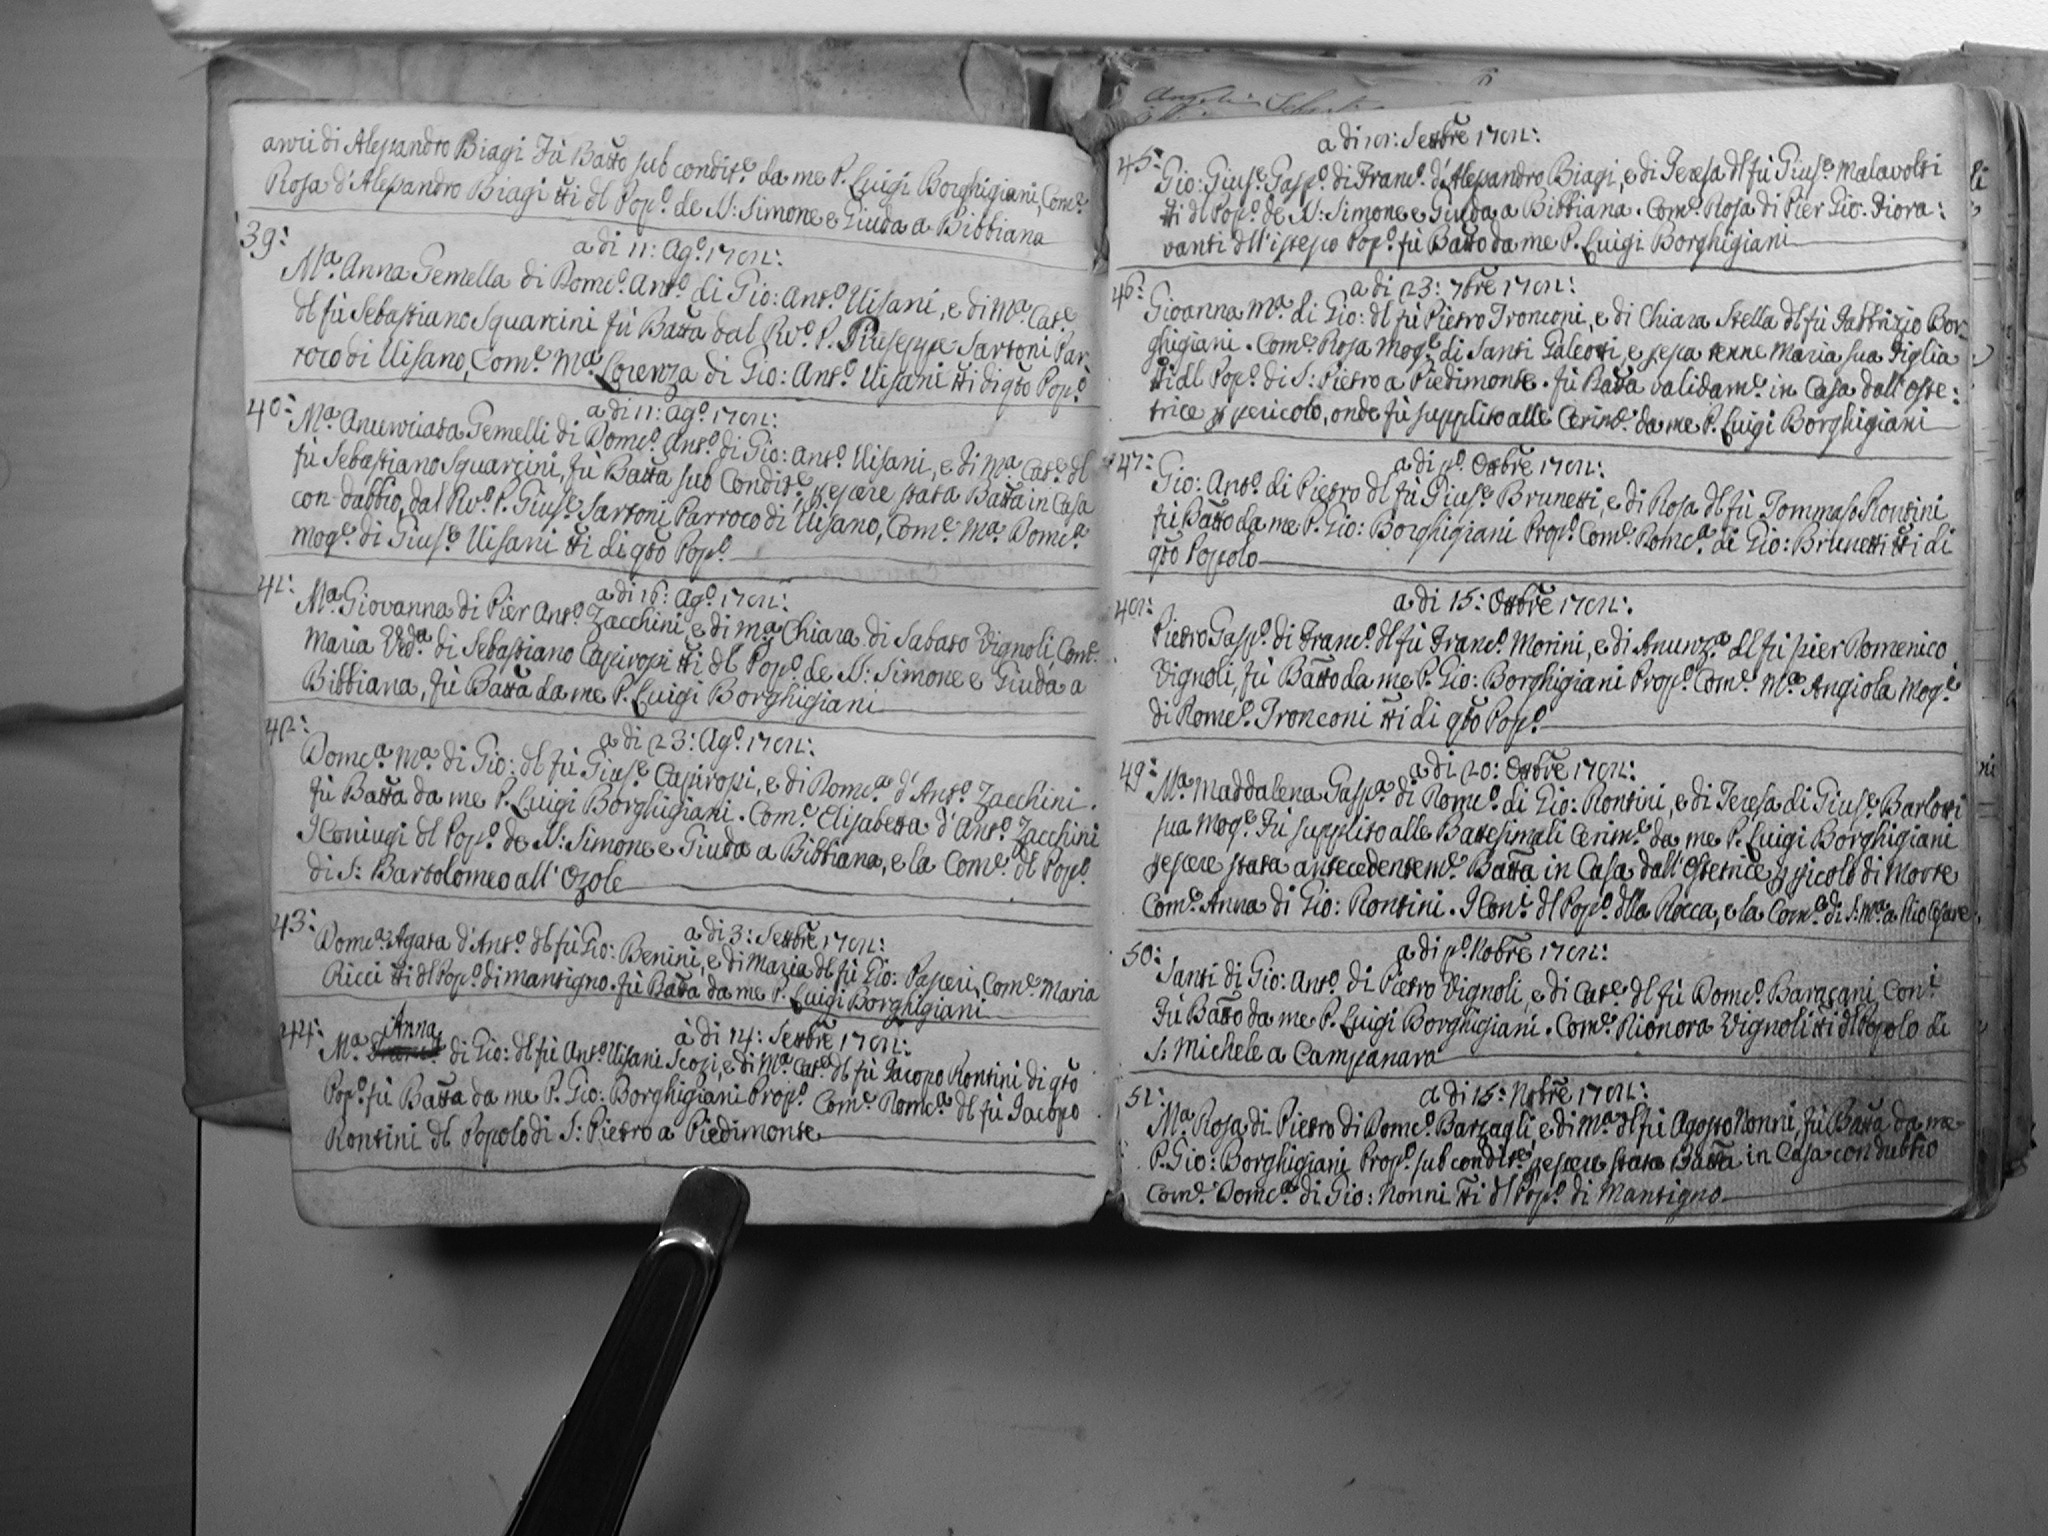 awii di Alessandro Biagi Fù Batto sub condite. da me P. Luigi Borghigiani, Come.
Rosa d'Alessandro Biagi tti dl Popo. de SS: Simone e Giuda a Bibbiana
39: a di 11: Ago. 17
Ma. Anna Gemella di Domco. Anto. di Gio: Anto. Visani, e di Ma. Cate.
dl fù Sebastiano Squarcini fù Batta dal Rvo. P. Giuseppe Sartoni Par-
roco di Visano, Come. Ma. Lorenza di Gio: Anto. Visani tti di qto Popo.
40: a di 11: ago. 17
Ma. Anunciata Gemelli di Domco. Anto. di Gio: Anto. Visani, e di Ma. Cate. dl
fù Sebastiano Squarcini, fù Batta sub Condite. p essere stata Batta in Casa
con dubbio, dal Rvo. P. Giuse. Sartoni Parroco di Visano, Come. Ma. Domca.
moge. di Giuse. Visani tti di qto Popo.
41: a di 16: Ago. 17
Ma. Giovanna di Pier Anto. Zacchini, e di Ma. Chiara di Sabato Vignoli, Come.
Maria Veda. di Sebastiano Capiropi tti dl Popo. de SS: Simone e Giuda a
Bibbiana, fù Batta da me P. Luigi Borghigiani
42: a di 23: Ago. 17
Domca. Ma. di Gio: dl fù Giuse. Capiropi, e di Domca. d'Anto. Zacchini.
fù Batta da me P. Luigi Borghigiani. Come. Elisabetta d'Anto. Zacchini
I Coniugi dl Popo. de SS: Simone e Giuda a Bibbiana, e la Come. dl Popo.
di S: Bartolomeo all'Ozole
43: a di 3: Settbre 17
Domca. Agata d'Anto. dl fù Gio: Benini, e di Maria dl fù Gio: Passeri, Come. Maria
Ricci tti dl Popo. di Mantigno. fù Batta da me P. Luigi Borghigiani
44: à di 14: Settbre 17
Ma. Anna di Gio: dl fù Anto. Visani Scozi, e di Ma. Cata. dl fù Jacopo Rontini di qto
Popo. fù Batta da me P. Gio: Borghigiani Propo. Come. Domca. dl fù Jacopo
Rontini dl Popolo di S: Pietro a Piedimonte
45: a di Settbre 17
Gio: Giuse. Gaspo. di Franco. d'Alessandro Biagi, e di Teresa dl fù Giuse. Malavolti
tti dl Popo. de SS: Simone e Giuda a Bibbiana. Come. Rosa di Pier Gio. Fiora:
vanti dll'istesso Popo. fù Batto da me P. Luigi Borghigiani
46: a di 23: 7bre 17
Gioanna Ma. di Gio: dl fù Pietro Tronconi, e di Chiara Stella dl fù Fabbrizio Bor-
ghigiani. Come. Rosa Moge. di Santi Galeotti, e p essa tenne Maria sua Figlia
tti dl Popo. di S: Pietro a Piedimonte. fù Batta validame. in Casa dall'oste:
trice p pericolo, onde fù supplito alle Cerime. da me P. Luigi Borghigiani
47: a di po. Ottbre 17
Gio: Anto. di Pietro dl fù Giuse. Brunetti, e di Rosa dl fù Tommaso Rontini
fù Batto da me P. Gio: Borghigiani Propo. Come. Domca. di Gio: Brunetti tti di
qto Popolo
a di 15: Ottbre 17
Pietro Gaspo. di Franco. dl fù Franco. Morini, e di Anunza. dl fù pier Domenico
Vignoli, fù Batto da me P. Gio: Borghigiani Propo. Come. Ma. Angiola Moge.
di Domco. Tronconi tti di qto Popo.
49: a di 20: Ottbre 17
Ma. Maddalena Gaspa. di Domco. di Gio: Rontini, e di Teresa di Giuse. Barlotti
sua Moge. Fù supplito alle Battesimali Cerime. da me P. Luigi Borghigiani
p essere stata antecedenteme. Batta in Casa dall'ostetrice p picolo di Morte
Come. Anna di Gio: Rontini. I Coni. dl Popo. dlla Rocca, e la Come. di S: Ma. a Rio Cesare
50: a di po. Nobre 17
Santi di Gio: Anto. di Pietro Vignoli, e di Cate. dl fù Domco. Baracani Coni.
Fù Batto da me P. Luigi Borghigiani. Come. Dionora Vignoli tti dl Popolo di
S: Michele a Campanara
51: a di 15: Nobre 17
Ma. Rosa di Pietro di Domco. Barzagli e di Ma. dl fù Agosto Nonni, fù Batta da me
P. Gio: Borghigiani Propo. sub condite. p essere stata Batta in Casa con dubbio
Come. Domca. di Gio: Nonni tti dl Popo. di Mantigno